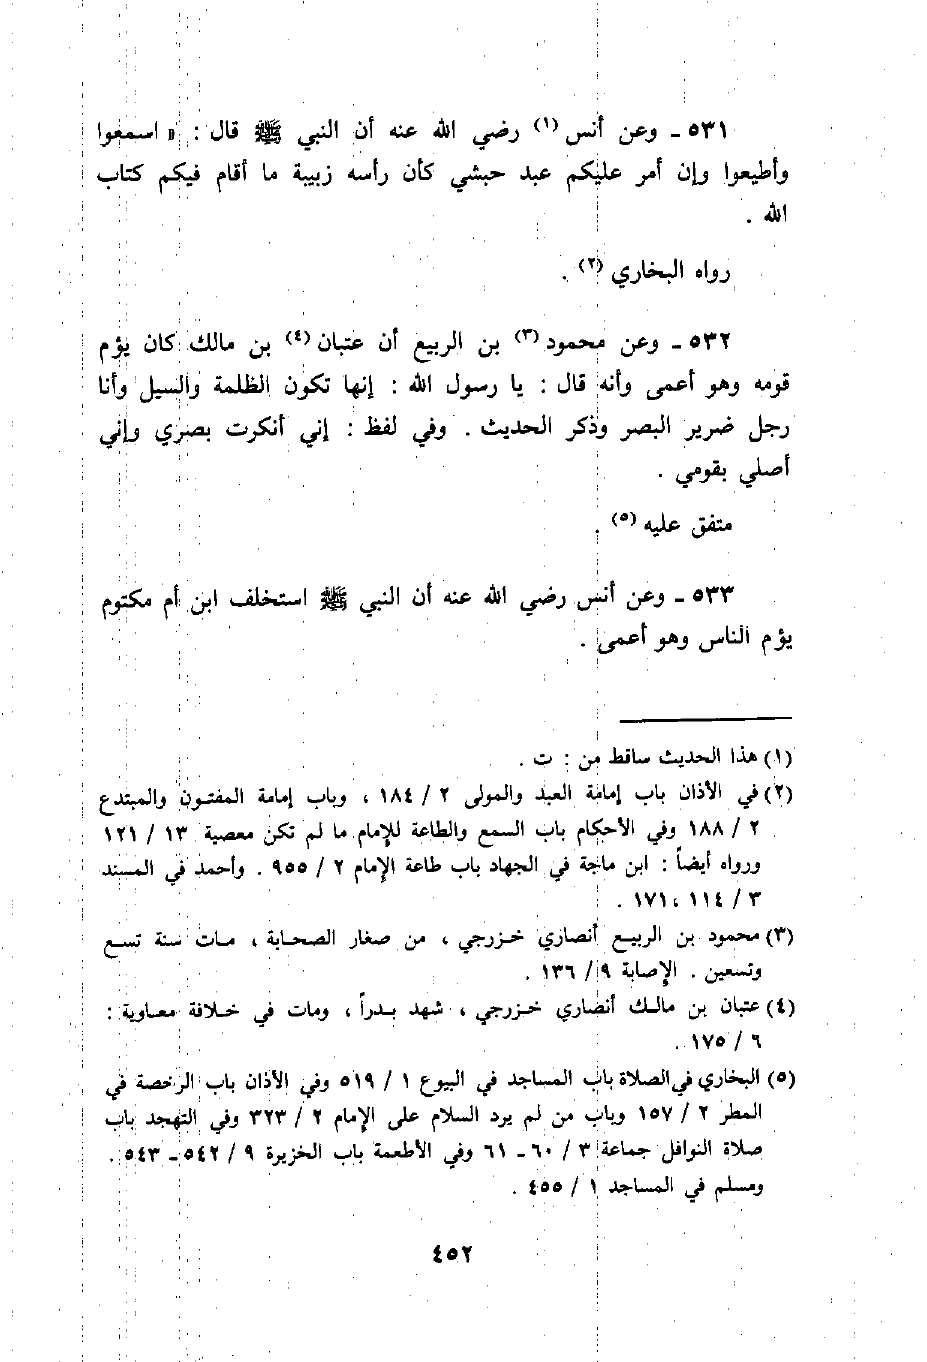 ٥٣١ ـ وعن أنس (١) رضي الله عنه أن النبي ﷺ قال : « اسمعوا
وأطيعوا وإن أمر عليكم عبد حبشي كأن رأسه زبيبة ما أقام فيكم كتاب
الله .
رواه البخاري (٢) .
٥٣٢ ـ وعن محمود (٣) بن الربيع أن عتبان (٤) بن مالك كان يؤم
قومه وهو أعمى وأنه قال : يا رسول الله : إنها تكون الظلمة والسيل وأنا
رجل ضرير البصر وذكر الحديث . وفي لفظ : إني أنكرت بصري وإني
أصلي بقومي .
متفق عليه (٥) .
٥٣٣ ـ وعن أنس رضي الله عنه أن النبي ﷺ استخلف ابن أم مكتوم
يؤم الناس وهو أعمى .
(١) هذا الحديث ساقط من : ت .
(٢) في الأذان باب إمامة العبد والمولى ٢ / ١٨٤ ، وباب إمامة المفتون والمبتدع
٢ / ١٨٨ وفي الأحكام باب السمع والطاعة للإمام ما لم تكن معصية ١٣ / ١٢١
ورواه أيضاً : ابن ماجة في الجهاد باب طاعة الإمام ٢ / ٩٥٥ . وأحمد في المسند
٣ / ١١٤ ، ١٧١ .
(٣) محمود بن الربيع أنصاري خزرجي ، من صغار الصحابة ، مات سنة تسع
وتسعين . الإصابة ٩ / ١٣٦ .
(٤) عتبان بن مالك أنصاري خزرجي ، شهد بدراً ، ومات في خلافة معاوية :
٦ / ١٧٥ .
(٥) البخاري في الصلاة باب المساجد في البيوع ١ / ٥١٩ وفي الأذان باب الرخصة في
المطر ٢ / ١٥٧ وباب من لم يرد السلام على الإمام ٢ / ٣٢٣ وفي التهجد باب
صلاة النوافل جماعة ٣ / ٦٠ ـ ٦١ وفي الأطعمة باب الخزيرة ٩ / ٥٤٢ ـ ٥٤٣ .
ومسلم في المساجد ١ / ٤٥٥ .
٤٥٢